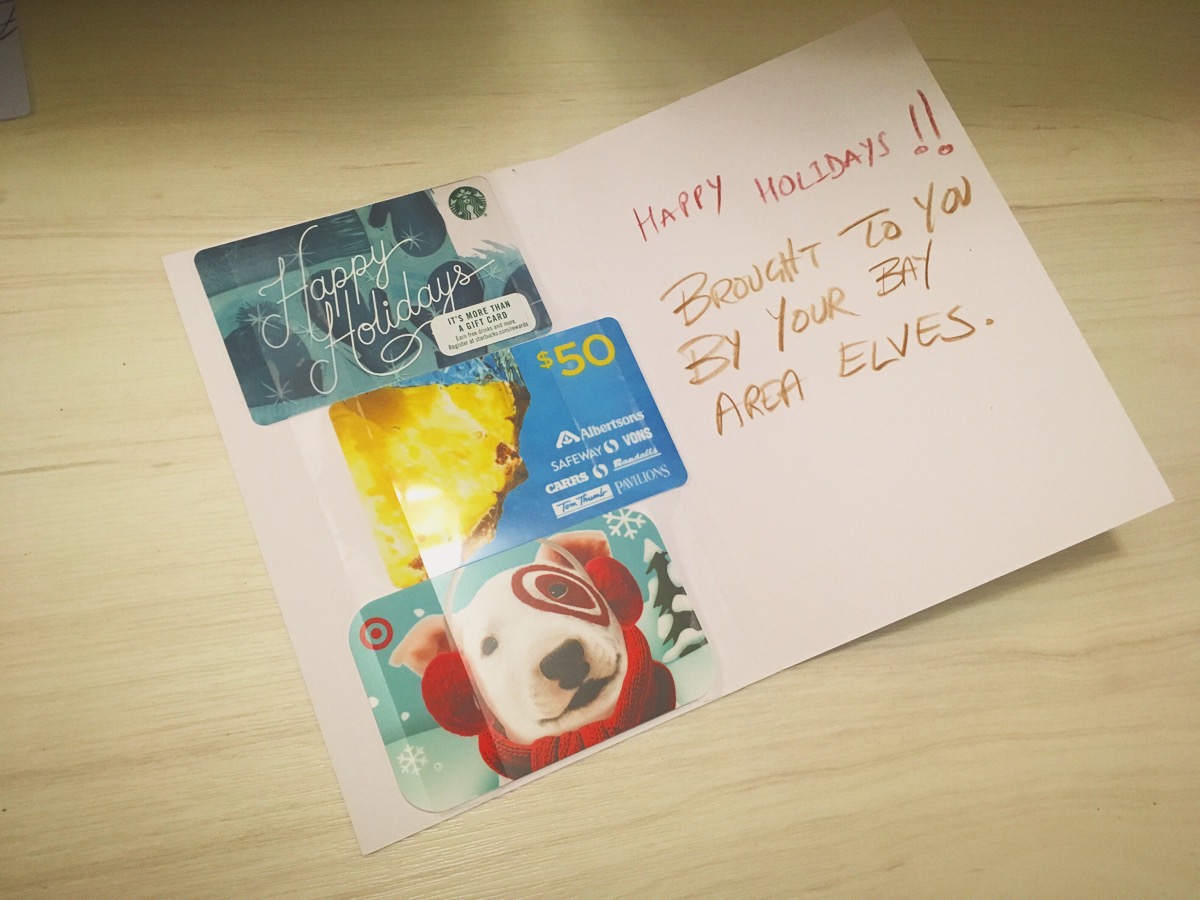 Happy
Holidays
IT'S MORE THAN
A GIFT CARD
Earn free drinks and more.
Register at starbucks.com/rewards
$50
Albertsons
SAFEWAY VONS
CARRS Randalls
Tom Thumb PAVILIONS
HAPPY HOLIDAYS !!
BROUGHT TO YOU
BY YOUR BAY
AREA ELVES.